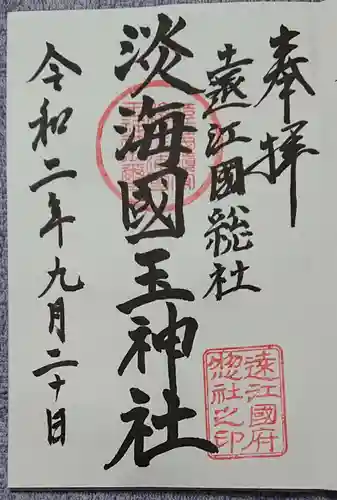 奉拝
遠江國総社
淡海國玉神社
令和二年九月二十日
遠江國府
惣社之印